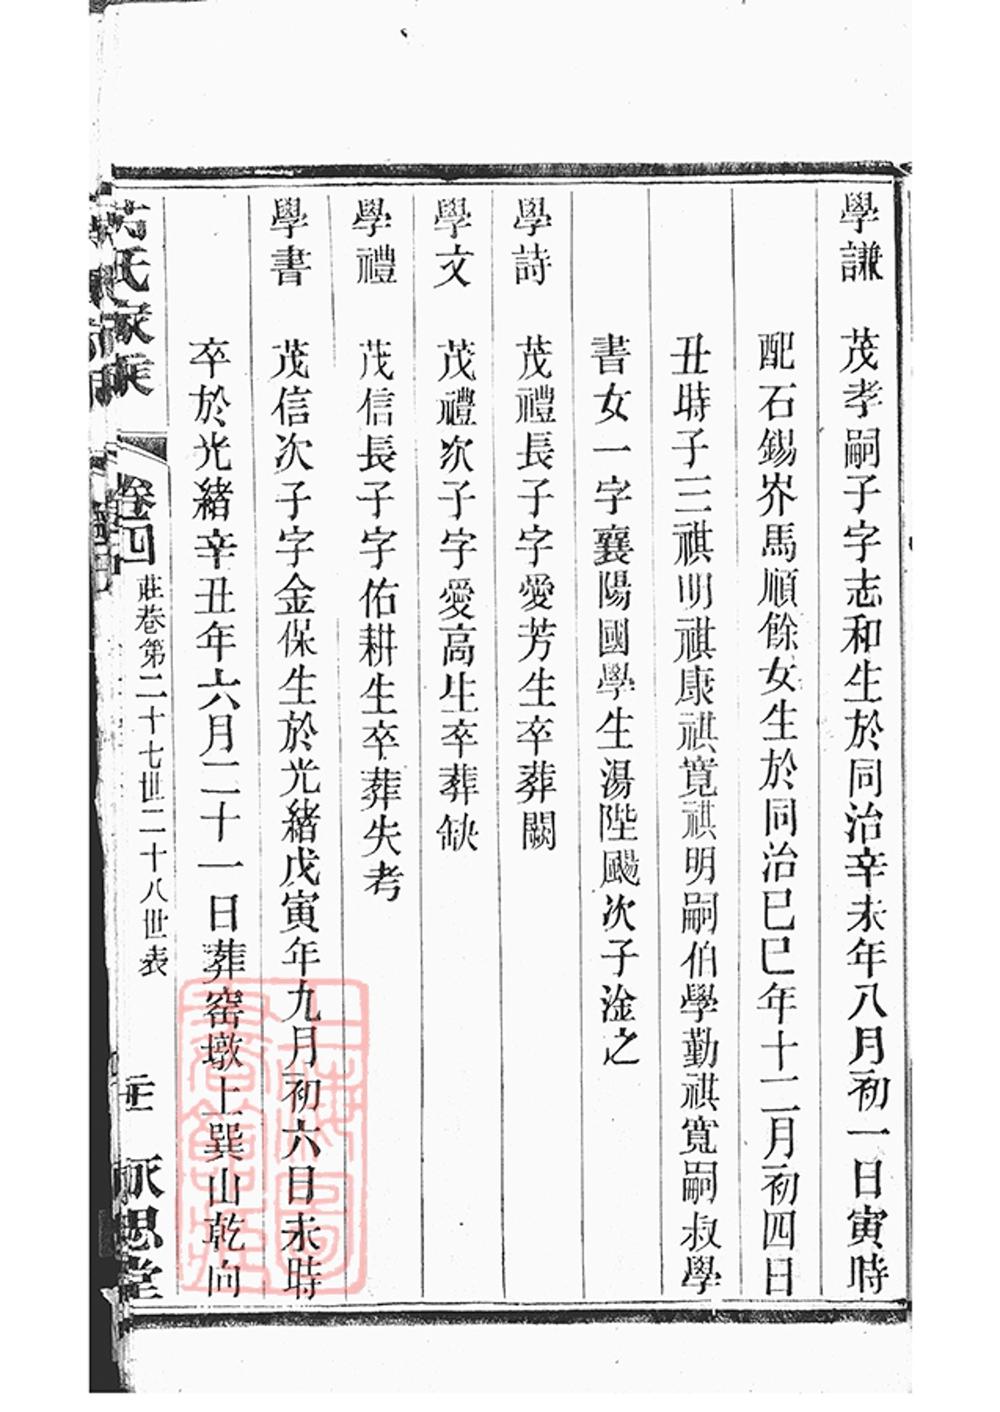 學謙　茂孝嗣子字志和生於同治辛未年八月初一日寅時
配石錫岕馬順餘女生於同治己巳年十二月初四日
丑時子三祺明祺康祺寬祺明嗣伯學勤祺寬嗣叔學
書女一字襄陽國學生湯陛颺次子淦之
學詩　茂禮長子字愛芳生卒葬闕
學文　茂禮次子字愛高生卒葬缺
學禮　茂信長子字佑耕生卒葬失考
學書　茂信次子字金保生於光緒戊寅年九月初六日未時
卒於光緒辛丑年六月二十一日葬窑墩上巽山乾向
氏家乘　卷四　莊巷第二十七世二十八世表　思堂
上海圖書館藏